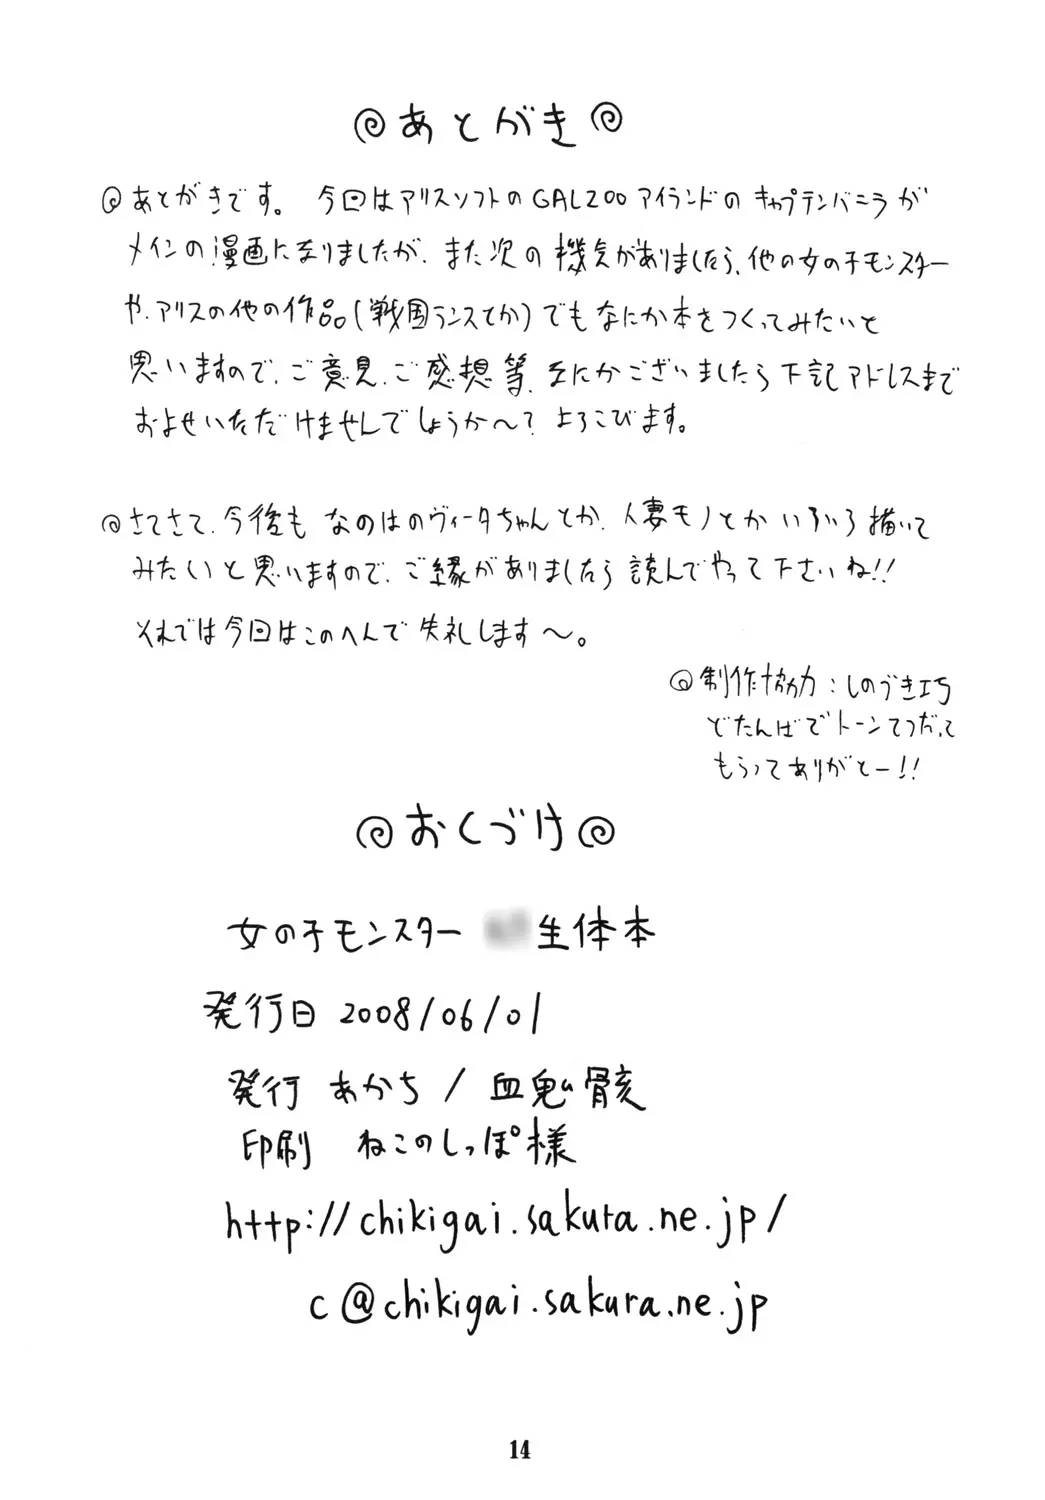 あとがき
あとがきです。 今回はアリスソフトのGALZOOアイランドのキャプテンバニラが
メインの漫画になりましたが、また次の機会がありましたら、他の女の子モンスター
や、アリスの他の作品(戦国ランスとか)でもなにか本をつくってみたいと
思いますので、ご意見、ご感想等、なにかございましたら下記アドレスまで
およせいただけませんでしょうか〜? よろこびます。
さてさて、今後も なのはのヴィータちゃんとか、人妻モノとか いろいろ描いて
みたいと思いますので、ご縁がありましたら読んでやって下さいね!!
それでは今回はこのへんで失礼します〜。
制作協力:しのづき巧
どたんばでトーンてつだって
もらってありがとー!!
おくづけ
女の子モンスター 生体本
発行日 2008/06/01
発行 あかち / 血鬼の骨亥
印刷 ねこのしっぽ様
http://chikigai.sakura.ne.jp/
c@chikigai.sakura.ne.jp
14